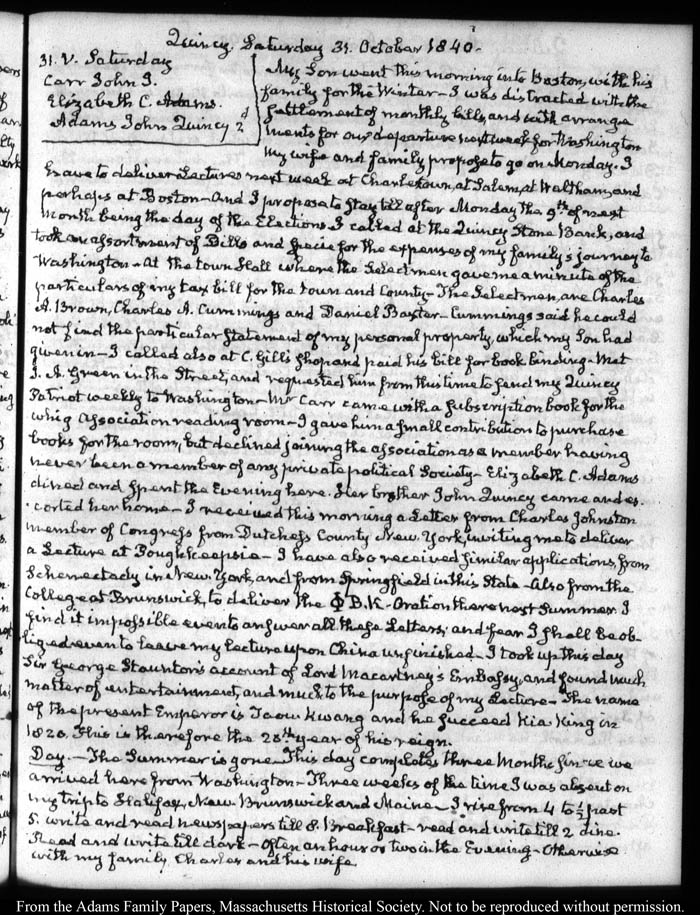 Quincy. Saturday 31. October 1840.
31. V. Saturday
Carr John I.
Elizabeth C. Adams.
Adams John Quincy 2d
My Son went this morning into Boston, with his
family for the Winter – I was distracted with the
settlement of monthly bills, and with arrange
ments for our departure next week for Washington
My wife and family propose to go on Monday. I
have to deliver Lectures next week at Charlestown, at Salem, at Waltham, and
perhaps at Boston – And I propose to stay till after Monday the 9th of next
Month being the day of the Elections. I called at the Quincy Stone Bank, and
took an assortment of Bills and Specie for the expenses of my family's journey to
Washington – At the town Hall where the Selectmen gave me a minute of the
particulars of my tax bill for the town and County – The Selectmen, are Charles
A. Brown, Charles A. Cummings and Daniel Baxter – Cummings said he could
not find the particular Statement of my personal property, which my Son had
given in – I called also at C. Gill's shop and paid his bill for book binding – Met
J. A. Green in the Street, and requested him from this time to send my Quincy
Patriot weekly to Washington – Mr Carr came with a subscription book for the
whig Association reading room – I gave him a small contribution to purchase
books for the room, but declined joining the association as a member having
never been a member of any private political Society – Elizabeth C. Adams
dined and spent the Evening here. Her brother John Quincy came and es-
corted her home – I received this morning a Letter from Charles Johnston
member of Congress from Dutchess County New York, inviting me to deliver
a Lecture at Poughkeepsie – I have also received similar applications, from
Schenectady in New York, and from Springfield in this State – Also from the
College at Brunswick, to deliver the Φ B. K. Oration there next Summer. I
find it impossible even to answer all these Letters; and fear I shall be ob-
liged even to leave my lecture upon China unfinished – I took up this day
Sir George Staunton's account of Lord Macartney's Embassy, and found much
matter of entertainment, and much to the purpose of my Lecture – The name
of the present Emperor is Taou Kwang and he succeed Kia King in
1820. This is therefore the 20th year of his reign.
Day. – The Summer is gone – This day completes three Months since we
arrived here from Washington – Three weeks of the time I was absent on
my trip to Halifax, New Brunswick and Maine – I rise from 4 to ½ past
5. write and read newspapers till 8. Breakfast – read and write till 2 dine.
Read and write till dark – Often an hour or two in the Evening – Otherwise
with my family, Charles and his wife.
From the Adams Family Papers, Massachusetts Historical Society. Not to be reproduced without permission.